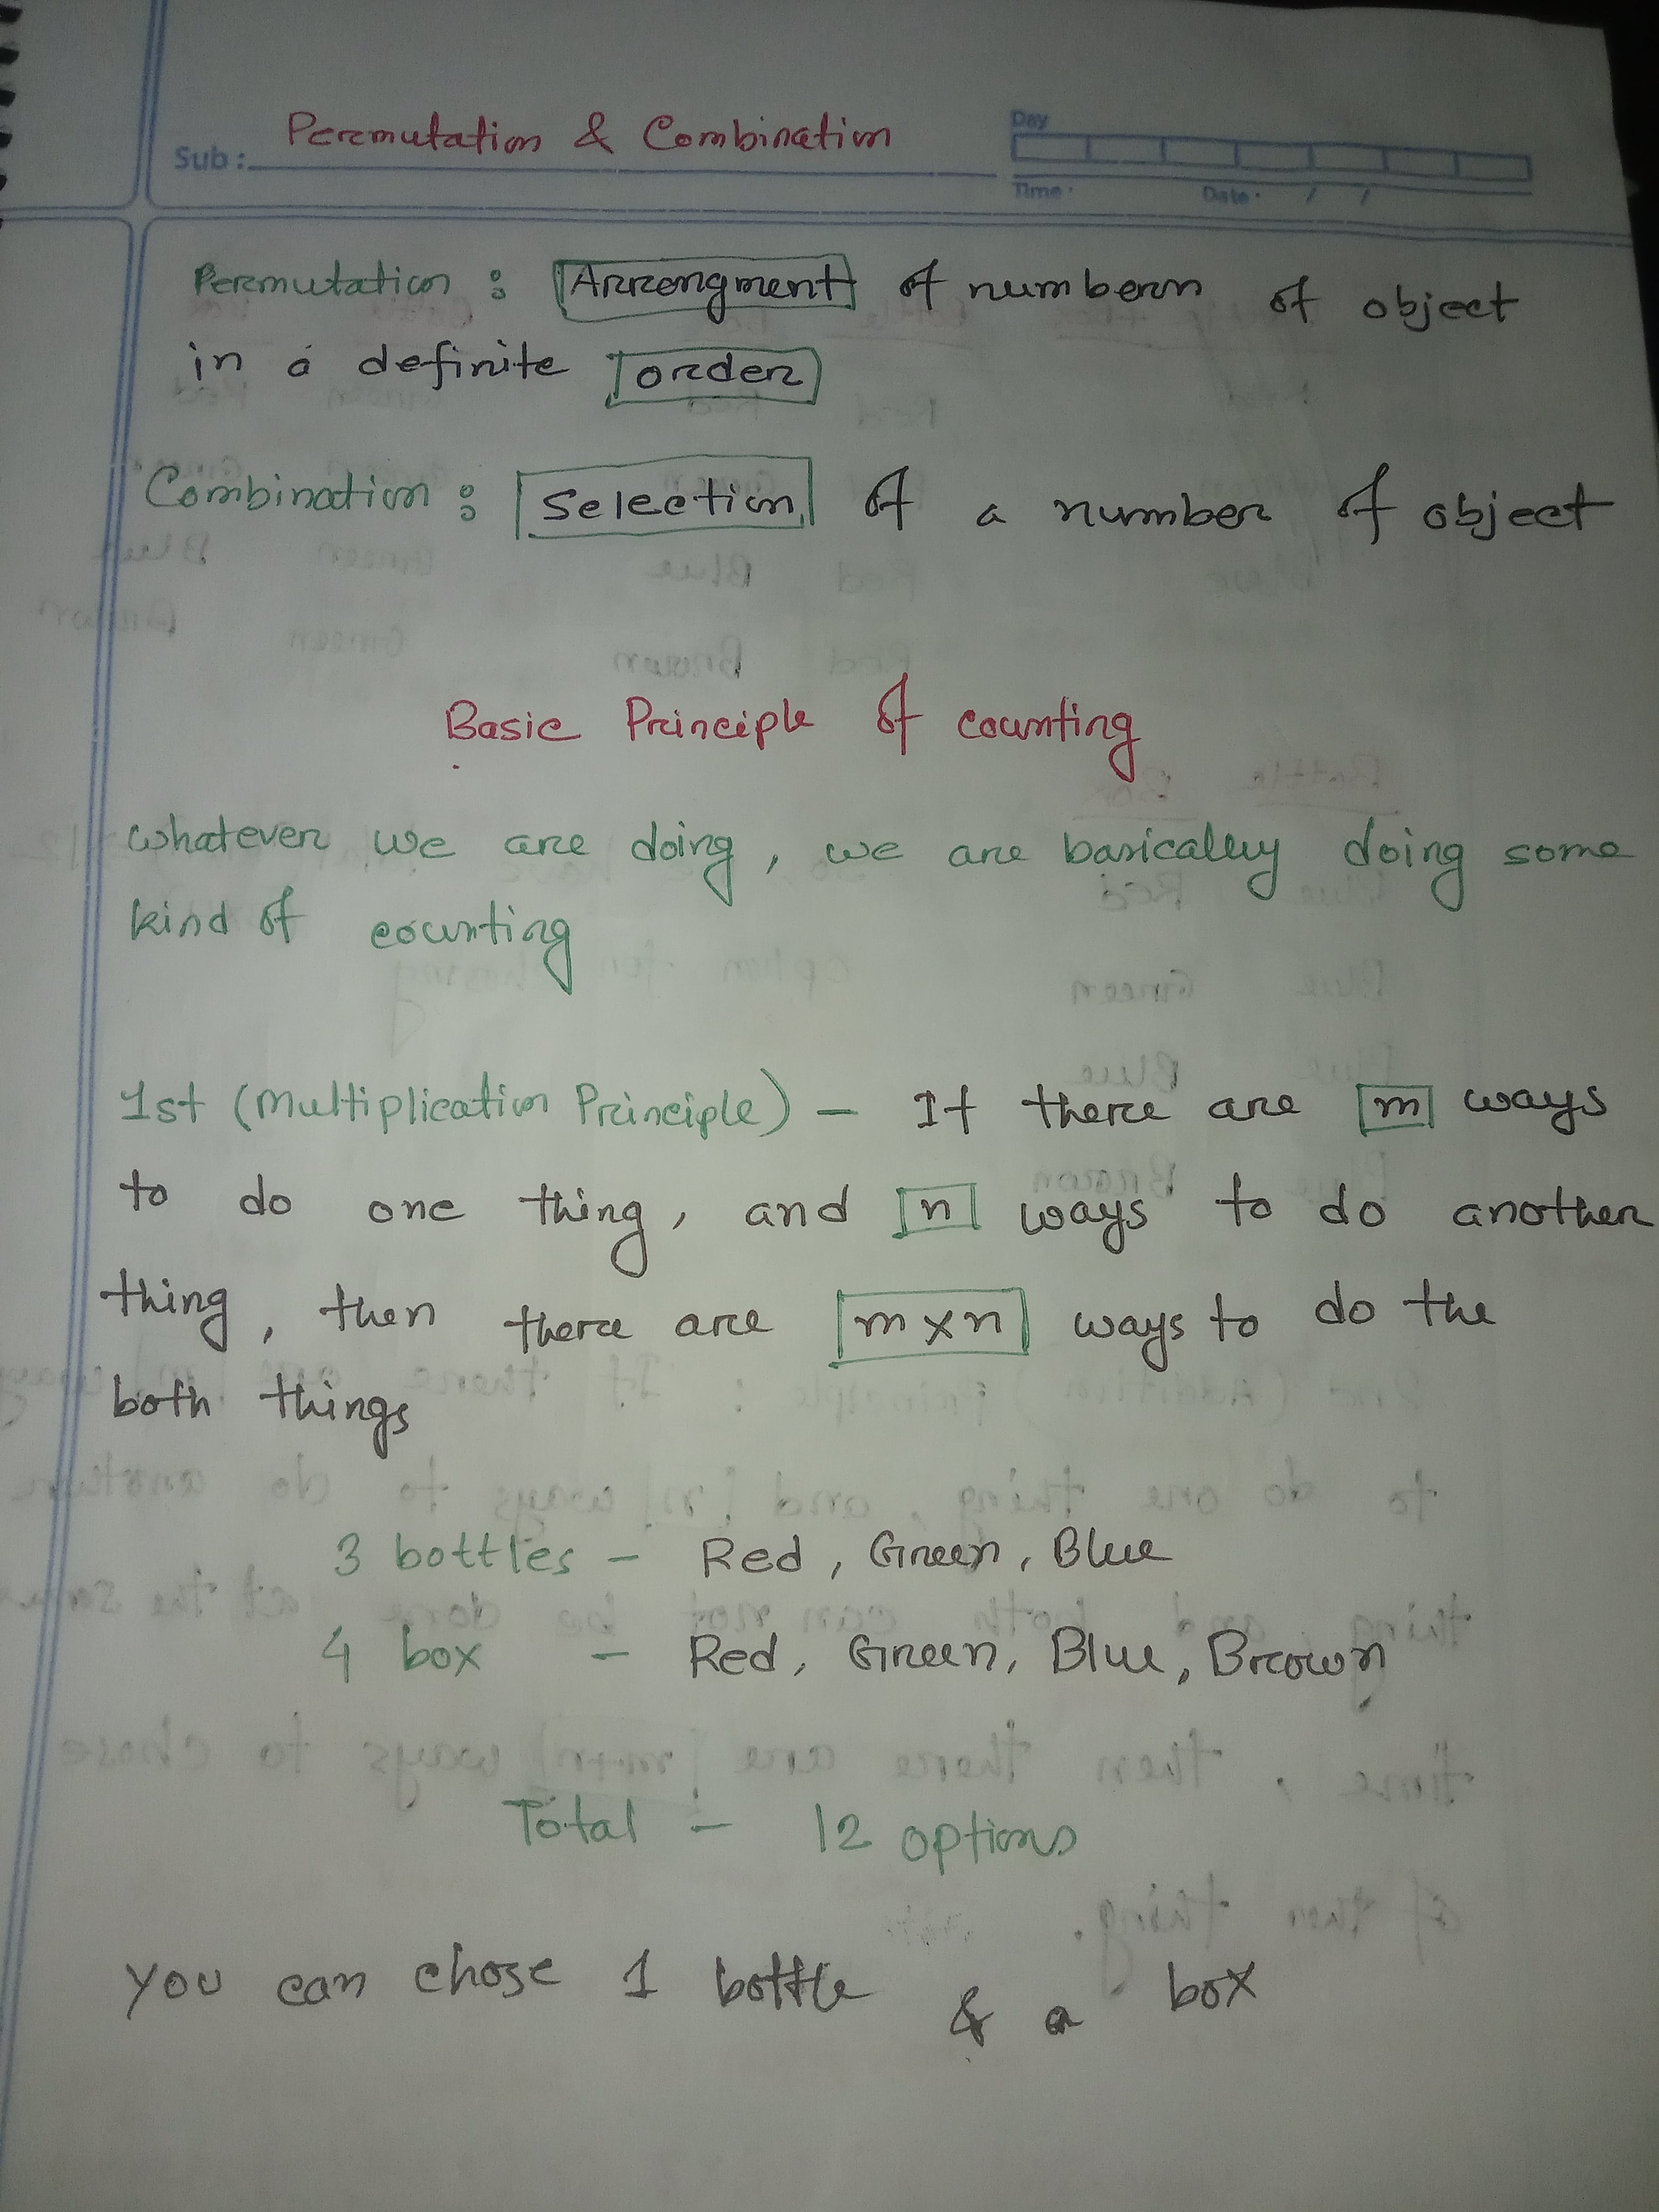 Sub : Permutation & Combination
Day
Time : Date : / /
Permutation : Arrengment of number of object
in a definite order
Combination : Selection of a number of object
Basic Principle of counting
whatever we are doing, we are basically doing some
kind of counting
1st (Multiplication Principle) – If there are m ways
to do one thing, and n ways to do another
thing, then there are m × n ways to do the
both things
3 bottles – Red, Green, Blue
4 box – Red, Green, Blue, Brown
Total – 12 options
You can chose 1 bottle & a box